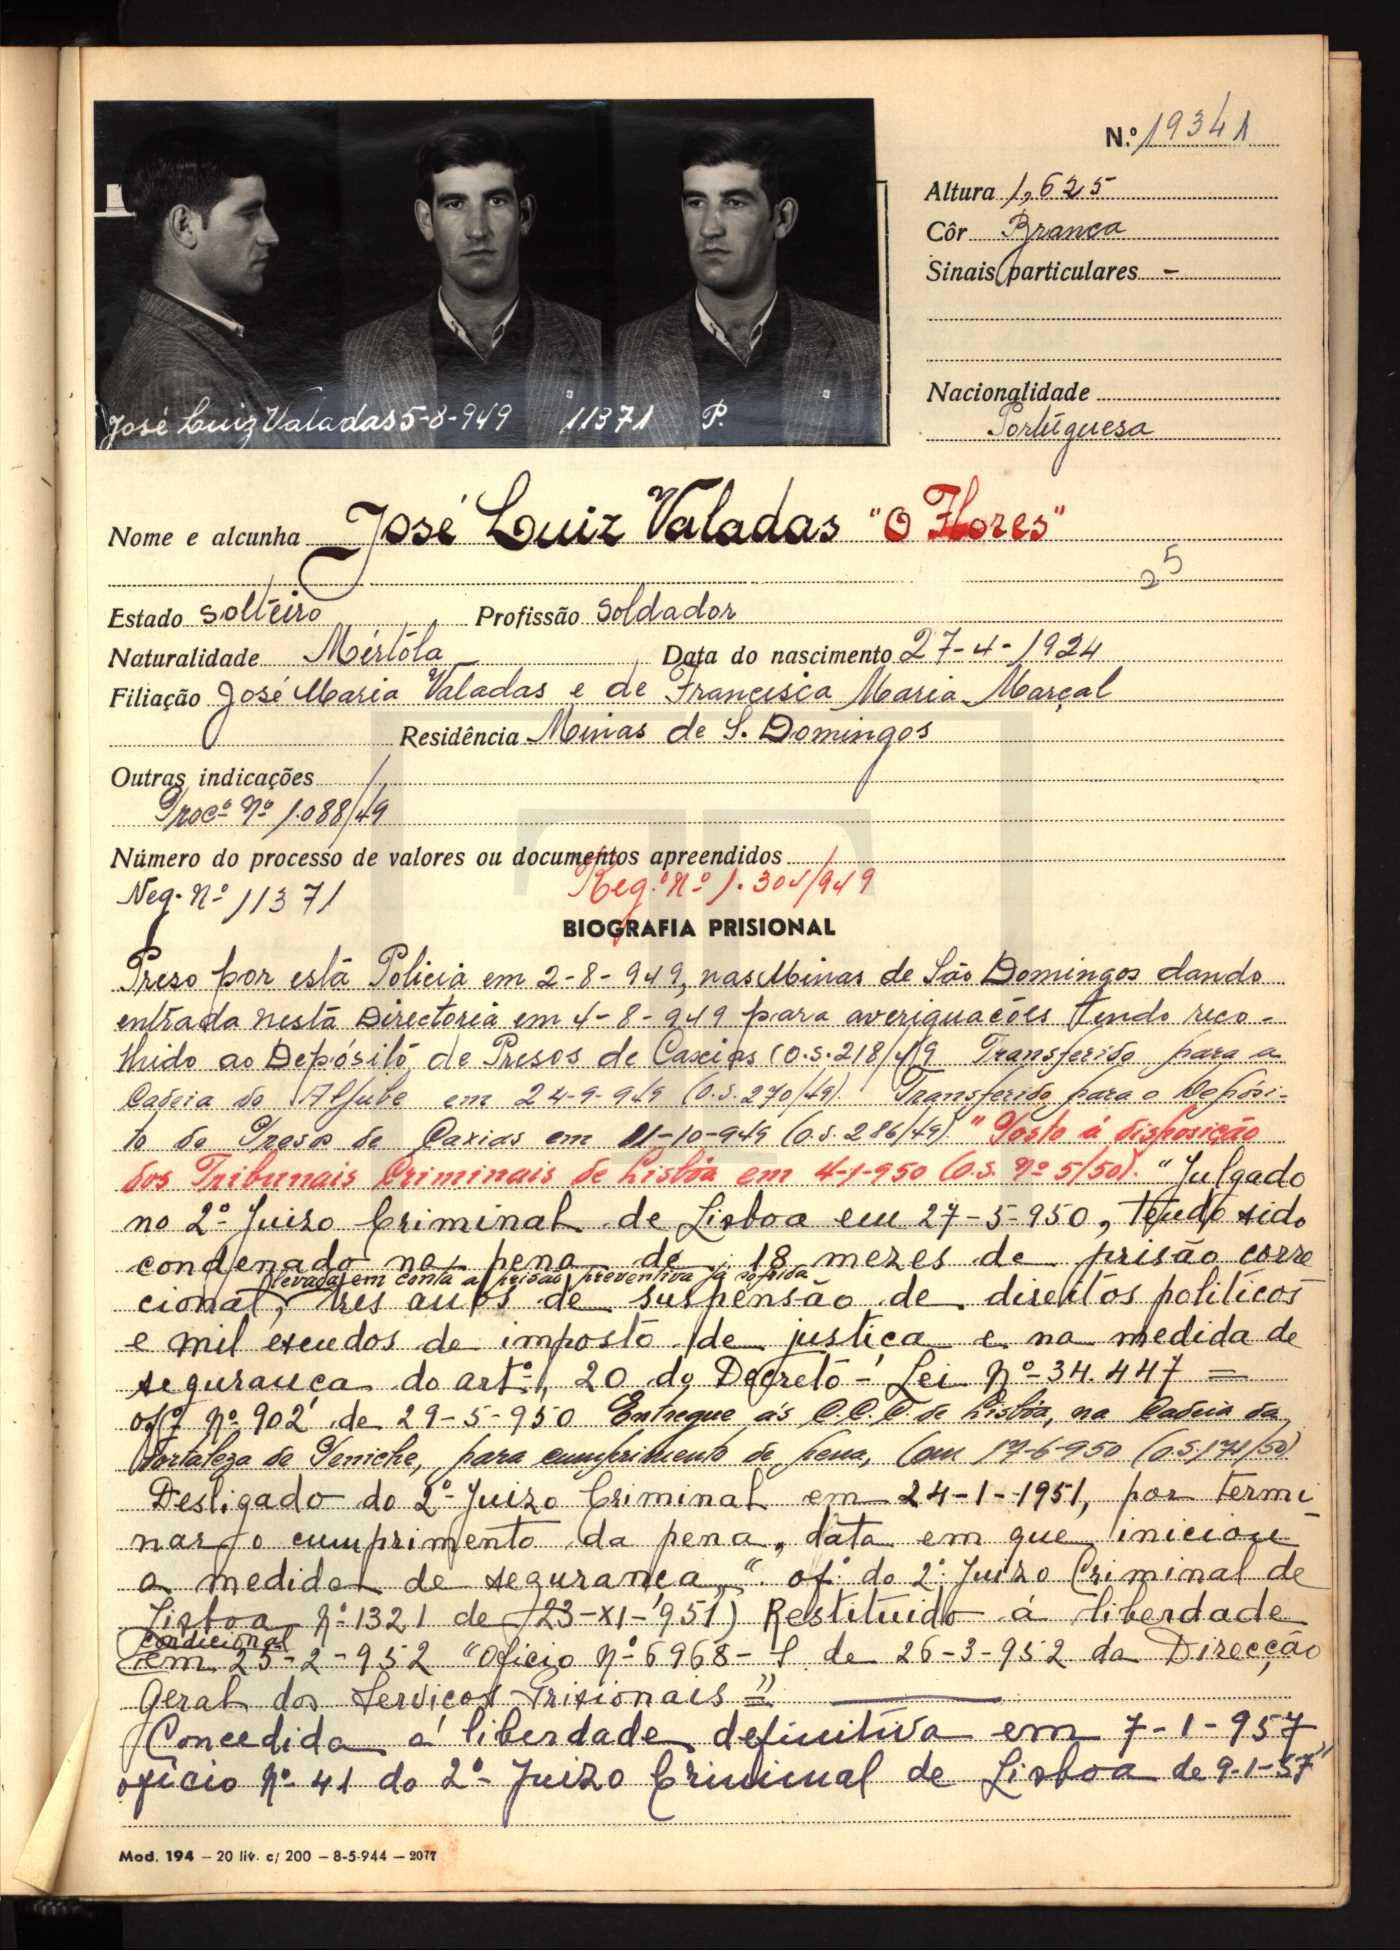 N.º 19341
Altura 1,625
Côr Branca
Sinais particulares -
Nacionalidade
Portuguesa
José Luiz Valadas 5-8-949 11371 P.
Nome e alcunha José Luiz Valadas "O Flores"
25
Estado solteiro Profissão soldador
Naturalidade Mértola Data do nascimento 27-4-1924
Filiação José Maria Valadas e de Francisca Maria Marçal
Residência Minas de S. Domingos
Outras indicações
Procº nº 1.088/49
Número do processo de valores ou documentos apreendidos
Neg. nº 11371 Reg.º nº 1.304/949
BIOGRAFIA PRISIONAL
Preso por esta Policia em 2-8-949, nas Minas de São Domingos dando
entrada nesta Directoria em 4-8-949 para averiguações tendo reco-
lhido ao Depósito de Presos de Caxias (O.S. 218/49 Transferido para a
Cadeia do Aljube em 24-9-949 (O.S. 270/49). Transferido para o Depósi-
to de Presos de Caxias em 11-10-949 (O.S. 286/49). "Posto á disposição
dos Tribunais Criminais de Lisboa em 4-1-950 (O.S. nº 5/50). "Julgado
no 2º Juizo Criminal de Lisboa em 27-5-950, tendo sido
condenado na pena de 18 mezes de prisão corre
levada em conta a prisão preventiva já sofrida
cional, três anos de suspensão de direitos politicos
e mil escudos de imposto de justiça e na medida de
segurança do artº, 20 do Decreto-Lei Nº 34.447 =
ofº nº 902 de 29-5-950 Entregue ás C.C.C. de Lisboa, na Cadeia da
Fortaleza de Peniche, para cumprimento de pena, em 17-6-950 (O.S. 171/50)
Desligado do 2º Juizo Criminal em 24-1-1951, por termi
nar o cumprimento da pena, data em que iniciou
a medida de segurança, ". of. do 2º Juizo Criminal de
Lisboa Nº 1321 de 23-XI-951) Restituido á liberdade
condicional
em 25-2-952 "Oficio Nº 6968-S de 26-3-952 da Direcção
Geral dos Serviços Prisionais="
Concedida a liberdade definitiva em 7-1-957
oficio Nº 41 do 2º Juizo Criminal de Lisboa de 9-1-57"
Mod. 194 — 20 liv. c/ 200 — 8-5-944 — 2077